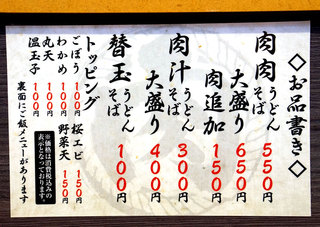 ◇お品書き◇
肉肉うどん 550円
大盛り 650円
肉追加 150円
肉汁うどん そば 300円
大盛り 400円
替玉うどん そば 100円
トッピング
ごぼう 100円
わかめ 100円
丸天 100円
温玉子 100円
桜エビ 150円
野菜天 150円
※価格は消費税込みの
表示となっております。
裏面にご飯メニューがあります